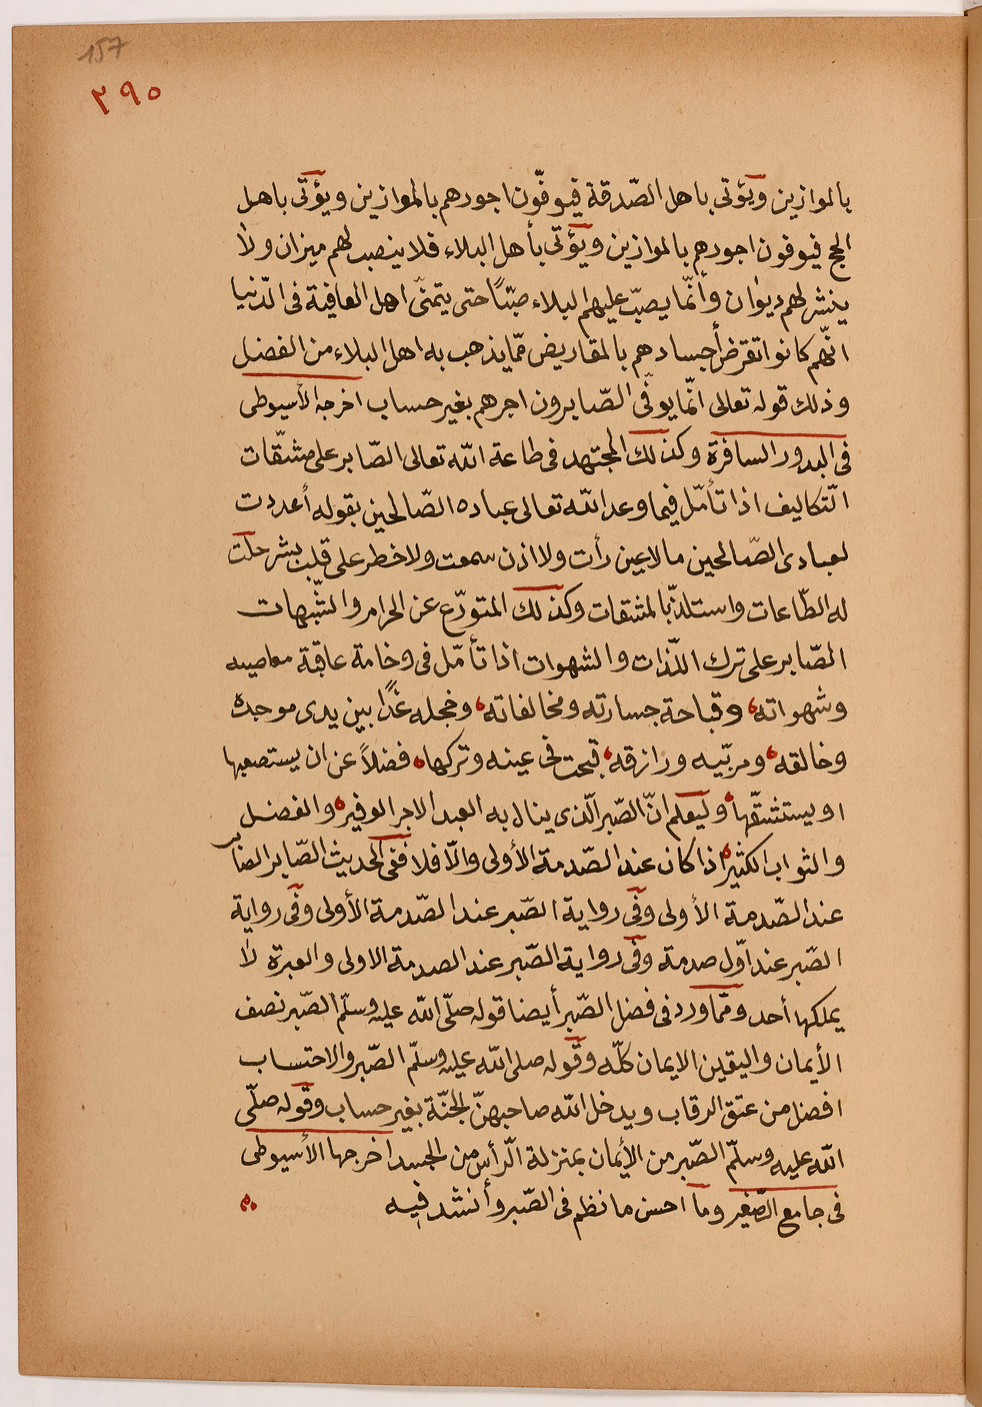 157
٢٩٥
بالموازين ويؤتى باهل الصّدقة فيوفّون اجورهم بالموازين ويؤتى باهل
الحج فيوفون اجورهم بالموازين ويؤتى بأهل البلاء فلا ينصب لهم ميزان ولا
ينشر لهم ديوان وأنّما يصبّ عليهم البلاء صبّاً حتى يتمنّى اهل العافية فى الدّنيا
انّهم كانوا تقرض أجسادهم بالمقاريض ممّا يذهب به اهل البلاء من الفضل
وذلك قوله تعالى انّما يوفّى الصّابرون اجرهم بغير حساب اخرجه الأسيوطى
فى البدور السافرة وكذلك المجتهد فى طاعة اللّه تعالى الصّابر على مشقّات
التّكاليف اذا تأمّل فيما وعد اللّه تعالى عباده الصّالحين بقوله أعددت
لعبادى الصّالحين مالا عين رأت ولا اذن سمعت ولا خطر على قلب بشر حلت
له الطّاعات واستلذّ بالمشقات وكذلك المتورّع عن الحرام والشّبهات
الصّابر على ترك اللّذات والشهوات اذا تأمّل فى وخامة عاقبة معاصيه
وشهواته، وقباحة جسارته ومخالفاته، وخجله غدًا بين يدى موجده
وخالقه، ومربّيه ورازقه، قبحت فى عينه وتركها، فضلاً عن ان يستصعبها
او يستشقّها، وليعلم انّ الصّبر الّذى ينال به العبد الاجر الوفير، والفضل
والثواب الكثير، اذا كان عند الصّدمة الأولى والاّ فلا ففى الحديث الصّابر الصّابر
عند الصّدمة الأولى وفى رواية الصّبر عند الصّدمة الأولى وفى رواية
الصّبر عند اوّل صدمة وفى رواية الصّبر عند الصدمة الاولى والعبرة لا
يملكها أحد وممّا ورد فى فضل الصّبر أيضا قوله صلّى اللّه عليه وسلّم الصّبر نصف
الأيمان واليقين الايمان كلّه وقوله صلى اللّه عليه وسلّم الصّبر والاحتساب
افضل من عتق الرقاب ويدخل اللّه صاحبهنّ الجنّة بغير حساب وقوله صلّى
اللّه عليه وسلّم الصّبر من الأيمان بمنزلة الرّأس من الجسد اخرجها الأسيوطى
فى جامع الصّغير وما احسن ما نظم فى الصّبر وأنشد فيه